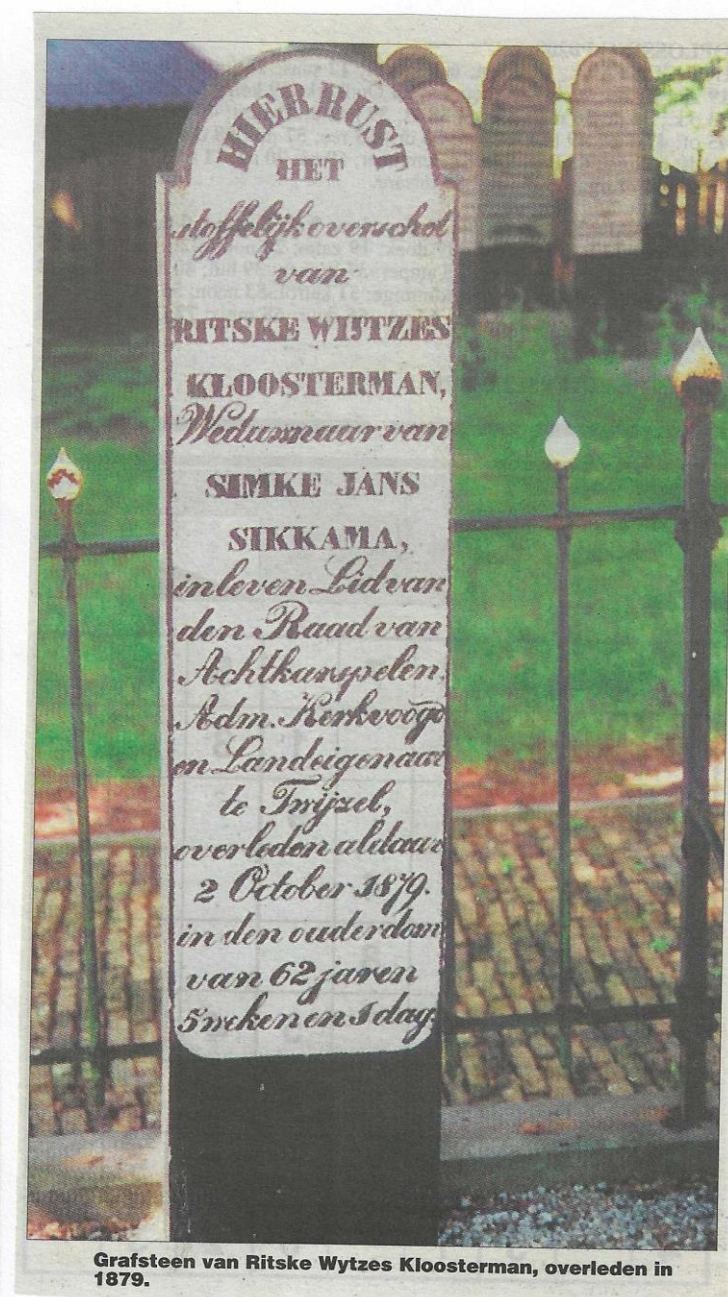 HIER RUST
HET
stoffelijk overschot
van
RITSKE WIJTZES
KLOOSTERMAN,
Weduwnaar van
SIMKE JANS
SIKKAMA,
in leven Lid van
den Raad van
Achtkarspelen,
Adm. Kerkvoogd
en Landeigenaar
te Twijzel,
overleden aldaar
2 October 1879.
in den ouderdom
van 62 jaren
5 weken en 1 dag.
Grafsteen van Ritske Wytzes Kloosterman, overleden in
1879.